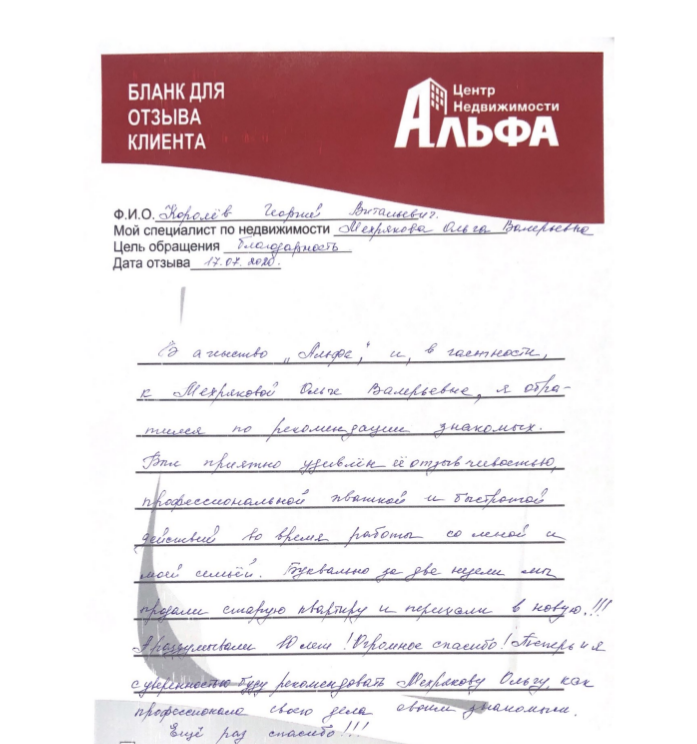 БЛАНК ДЛЯ
ОТЗЫВА
КЛИЕНТА
Центр
Недвижимости
АЛЬФА
Ф.И.О. Королёв Георгий Витальевич.
Мой специалист по недвижимости Мехрякова Ольга Валерьевна
Цель обращения благодарность
Дата отзыва 17.07.2020.
В агнество „Альфа", и, в частности,
к Мехряковой Ольге Валерьевне, я обра-
тился по рекомендации знакомых.
Был приятно удивлён её отзывчивостью,
профессиональной хваткой и быстротой
действий во время работы со мной и
моей семьёй. Буквально за две недели мы
продали старую квартиру и переехали в новую!!!
А раздумывали 10 лет! Огромное спасибо! Теперь и я
с уверенностью буду рекомендовать Мехрякову Ольгу, как
профессионала своего дела своим знакомым.
Ещё раз спасибо!!!